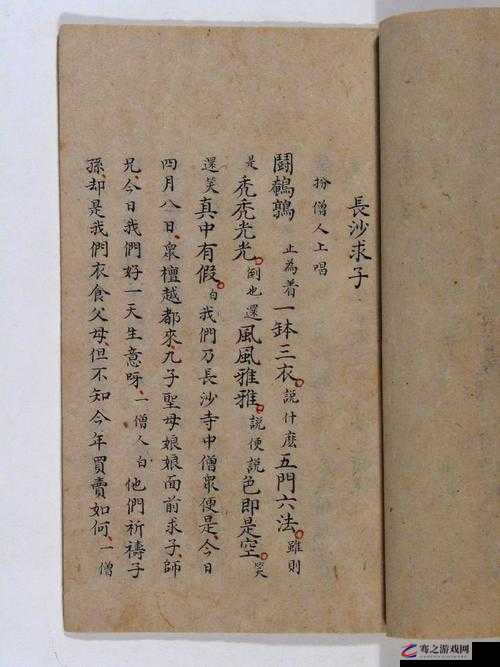 長沙求子
扮僧人上唱
鬪鵪鶉 止為着一鉢三衣。説什麽五門六法。雖則
是禿禿光光。倒也還風風雅雅。説便説色即是空。笑
還笑真中有假。白我們乃長沙寺中僧衆便是、今日
四月八日、衆檀越都來九子聖母娘娘面前求子、師
兄、今日我們好一天生意呀、一僧人白他們祈禱子
孫、却是我們衣食父母、但不知今年買賣如何、一僧
骞之游戏网